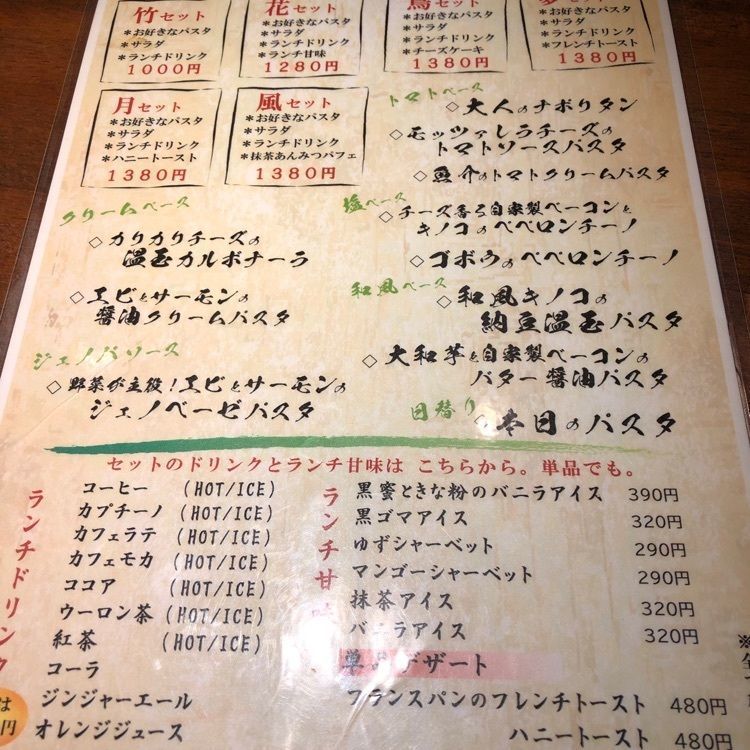 竹セット
＊お好きなパスタ
＊サラダ
＊ランチドリンク
1000円
花セット
＊お好きなパスタ
＊サラダ
＊ランチドリンク
＊ランチ甘味
1280円
＊お好きなパスタ
＊サラダ
＊ランチドリンク
＊チーズケーキ
1380円
＊お好きなパスタ
＊サラダ
＊ランチドリンク
＊フレンチトースト
1380円
月セット
＊お好きなパスタ
＊サラダ
＊ランチドリンク
＊ハニートースト
1380円
風セット
＊お好きなパスタ
＊サラダ
＊ランチドリンク
＊抹茶あんみつパフェ
1380円
クリームベース
◇カリカリチーズの
温玉カルボナーラ
◇エビとサーモンの
醤油クリームパスタ
ジェノバソース
◇野菜が主役！エビとサーモンの
ジェノベーゼパスタ
トマトベース
◇大人のナポリタン
◇モッツァレラチーズの
トマトソースパスタ
◇魚介のトマトクリームパスタ
塩ベース
◇チーズ香る自家製ベーコンと
キノコのペペロンチーノ
◇ゴボウのペペロンチーノ
和風ベース
◇和風キノコの
納豆温玉パスタ
◇大和芋と自家製ベーコンの
バター醤油パスタ
日替り
◇本日のパスタ
セットのドリンクとランチ甘味は こちらから。単品でも。
ランチドリンク
コーヒー (HOT/ICE)
カプチーノ (HOT/ICE)
カフェラテ (HOT/ICE)
カフェモカ (HOT/ICE)
ココア (HOT/ICE)
ウーロン茶 (HOT/ICE)
紅茶 (HOT/ICE)
コーラ
ジンジャーエール
オレンジジュース
ランチ甘味
黒蜜ときな粉のバニラアイス 390円
黒ゴマアイス 320円
ゆずシャーベット 290円
マンゴーシャーベット 290円
抹茶アイス 320円
バニラアイス 320円
単品デザート
フランスパンのフレンチトースト 480円
ハニートースト 480円
は
円
※